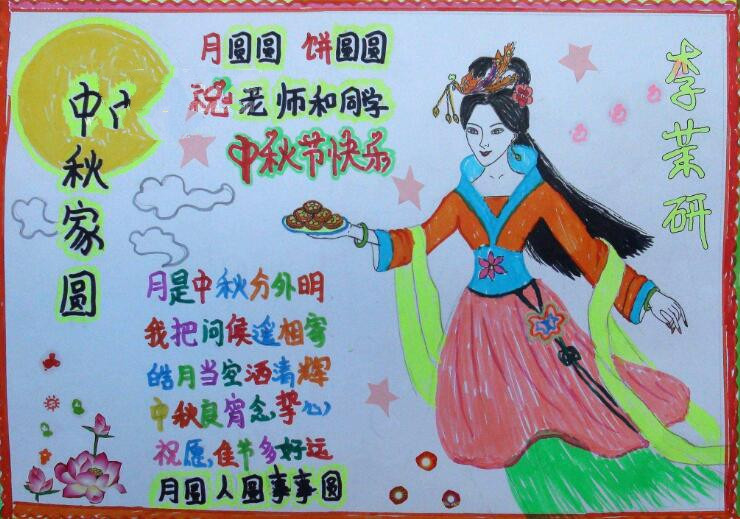 中秋家圆
月圆圆 饼圆圆
祝老师和同学
中秋节快乐
李茉研
月是中秋分外明
我把问候遥相寄
皓月当空洒清辉
中秋良宵念挚心
祝愿佳节多好运
月圆人圆事事圆